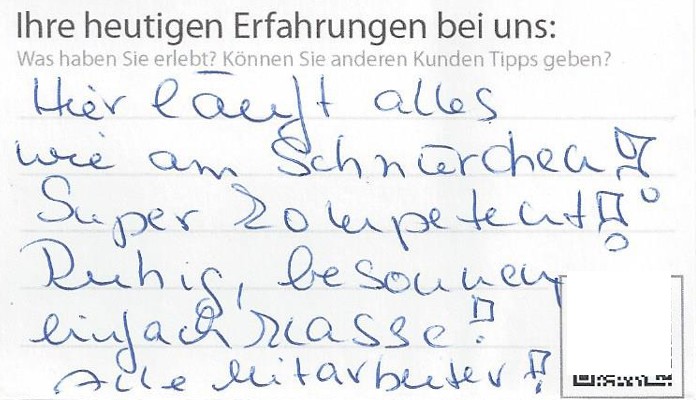 Ihre heutigen Erfahrungen bei uns:
Was haben Sie erlebt? Können Sie anderen Kunden Tipps geben?
Hier läuft alles
wie am Schnürchen!!
Super kompetent!!
Ruhig, besonnen,
einfach klasse!
Alle Mitarbeiter!